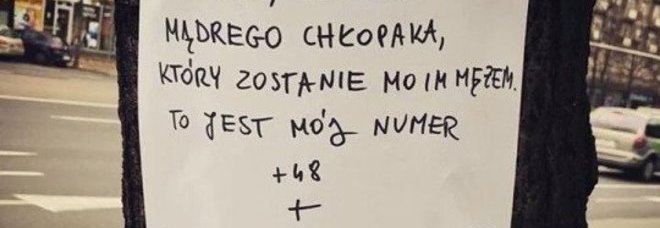 MĄDREGO CHŁOPAKA,
KTÓRY ZOSTANIE MOIM MĘŻEM.
TO JEST MÓJ NUMER
+48
+